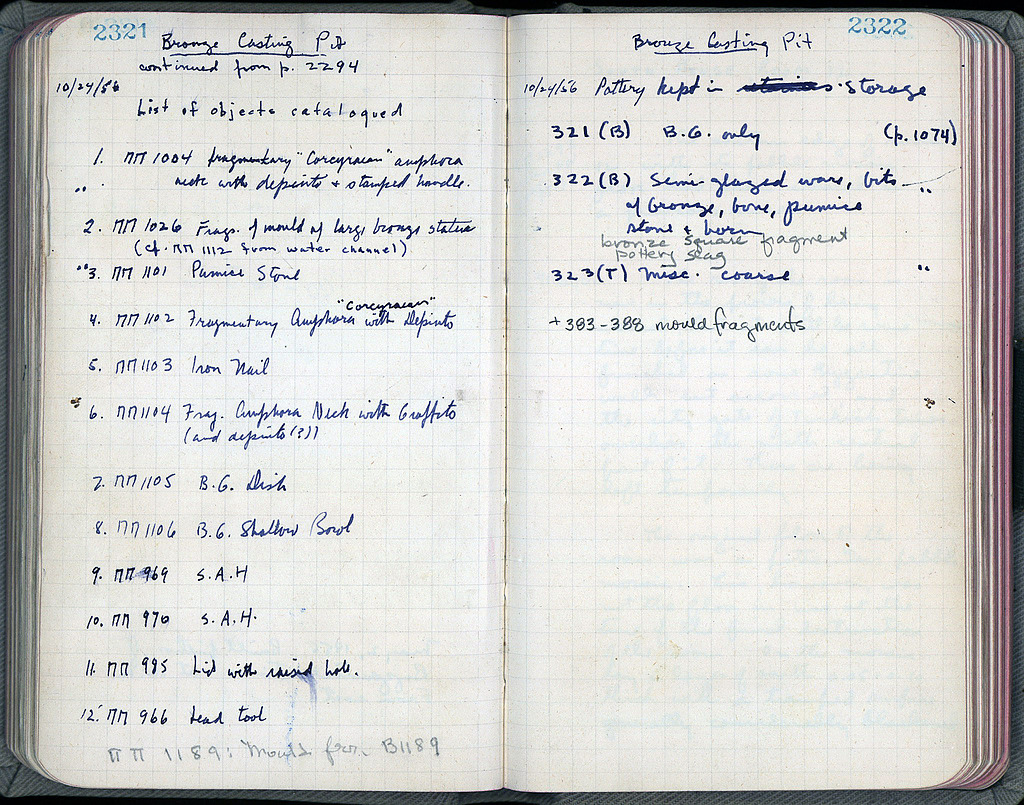 2321
Bronze Casting Pit
continued from p. 2294
10/24/56
List of objects catalogued
1. ΠΠ 1004 fragmentary "Corcyraean" amphora
neck with depinto & stamped handle.
2. ΠΠ 1026 Frags. of mould of large bronze statue
(cf. ΠΠ 1112 from water channel)
3. ΠΠ 1101 Pumice Stone
"Corcyraean"
4. ΠΠ 1102 Fragmentary Amphora with Depinto
5. ΠΠ 1103 Iron Nail
6. ΠΠ 1104 Frag. Amphora Neck with Graffito
(and depinto (?))
7. ΠΠ 1105 B.G. Dish
8. ΠΠ 1106 B.G. Shallow Bowl
9. ΠΠ 969 S.A.H
10. ΠΠ 970 S.A.H.
11. ΠΠ 985 Lid with raised hole.
12. ΠΠ 966 Lead tool
ΠΠ 1189: Mould from B1189
2322
Bronze Casting Pit
10/24/56 Pottery kept in storage
321 (B) B.G. only (p. 1074)
322 (B) Semi-glazed ware, bits "
of bronze, bone, pumice
stone & horn
bronze square fragment
pottery slag
323 (T) Misc. coarse "
+ 383-388 mould fragments